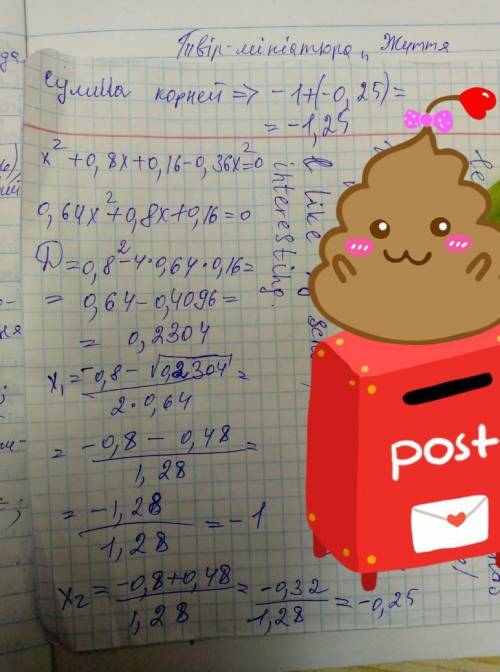 Твір-мініатюра „Життя
Сумма корней => -1+(-0,25)=
= -1,25
x²+0,8x+0,16-0,36x²=0
0,64x²+0,8x+0,16=0
D=0,8²-4·0,64·0,16=
= 0,64-0,4096=
= 0,2304
x₁= -0,8-√0,2304 / 2·0,64 =
= -0,8-0,48 / 1,28 =
= -1,28 / 1,28 = -1
x₂= -0,8+0,48 / 1,28 = -0,32 / 1,28 = -0,25
I like
interesting.
post